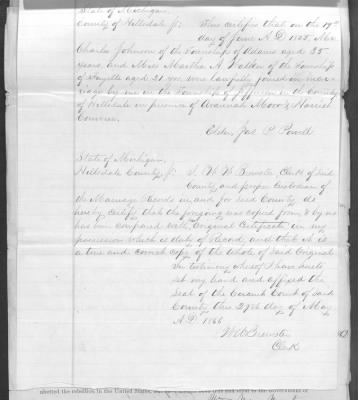 State of Michigan
County of Hillsdale ss This certifies that on the 19th
day of June A.D. 1855, Mr
Charles Johnson of the Township of Adams aged 25
years, and Miss Martha A Walton of the Township
of Fayette aged 21 years were lawfully joined in marr
iage by me in the Township of Jefferson in the County
of Hillsdale in presence of & Harriet
Converse.
Elder Jas P Powell
State of Michigan
Hillsdale County ss I W W Brewster, Clerk of said
County and proper Custodian of
the Marriage Records in and for said County do
hereby certify that the forgoing was copied from & by me
has been compared with Original Certificate in my
possession which is duly of Record, and that it is
a true and correct copy of the whole of said Original
In testimony whereof I have hereto
set my hand and affixed the
Seal of the Circuit Court of said
County this 29th day of May
A.D. 1866
W W Brewster
Clerk
abetted the rebellion in the United States,